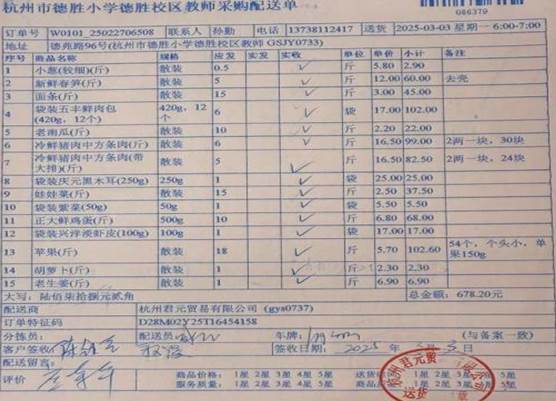 杭州市德胜小学德胜校区教师采购配送单
086379
订单号 W0101_25022706508 联系人 孙勤 电话 13738112417 送货 2025-03-03 星期一 6:00-7:00
地址 德苑路96号(杭州市德胜小学德胜校区教师 GSJY0733)
序号 商品名称 规格 应发 实发 实收 单位 单价 小计 备注
1 小葱(较细)(斤) 散装 0.5 斤 5.80 2.90
2 新鲜春笋(斤) 散装 5 斤 12.00 60.00 去壳
3 面条(斤) 散装 15 斤 3.00 45.00
4 袋装五丰鲜肉包(420g，12个) 420g，12个 6 袋 17.00 102.00
5 老南瓜(斤) 散装 10 斤 2.20 22.00
6 冷鲜猪肉中方条肉(斤) 散装 6 斤 16.50 99.00 2两一块，30块
7 冷鲜猪肉中方条肉(带大排)(斤) 散装 5 斤 16.50 82.50 2两一块，24块
8 袋装庆元黑木耳(250g) 250g 1 袋 25.00 25.00
9 娃娃菜(斤) 散装 15 斤 2.50 37.50
10 袋装紫菜(50g) 50g 1 袋 5.50 5.50
11 正大鲜鸡蛋(斤) 500g 10 斤 6.80 68.00
12 袋装兴洋淡虾皮(100g) 100g 1 袋 17.00 17.00
13 苹果(斤) 散装 18 斤 5.70 102.60 54个，个头小，单果150g
14 胡萝卜(斤) 散装 1 斤 2.30 2.30
15 老生姜(斤) 散装 1 斤 6.90 6.90
大写：陆佰柒拾捌元贰角 总金额：678.20元
配送商 杭州君元贸易有限公司 (gys0737)
订单特征码 D28M02Y25T16454158
分拣员： 配送员： 车牌： (与备案一致)
客户签收： 签收日期： 2025
配送留言：
评价 商品价格：1星 2星 3星 4星 5星
服务质量：1星 2星 3星 4星 5星
杭州君元贸
送货